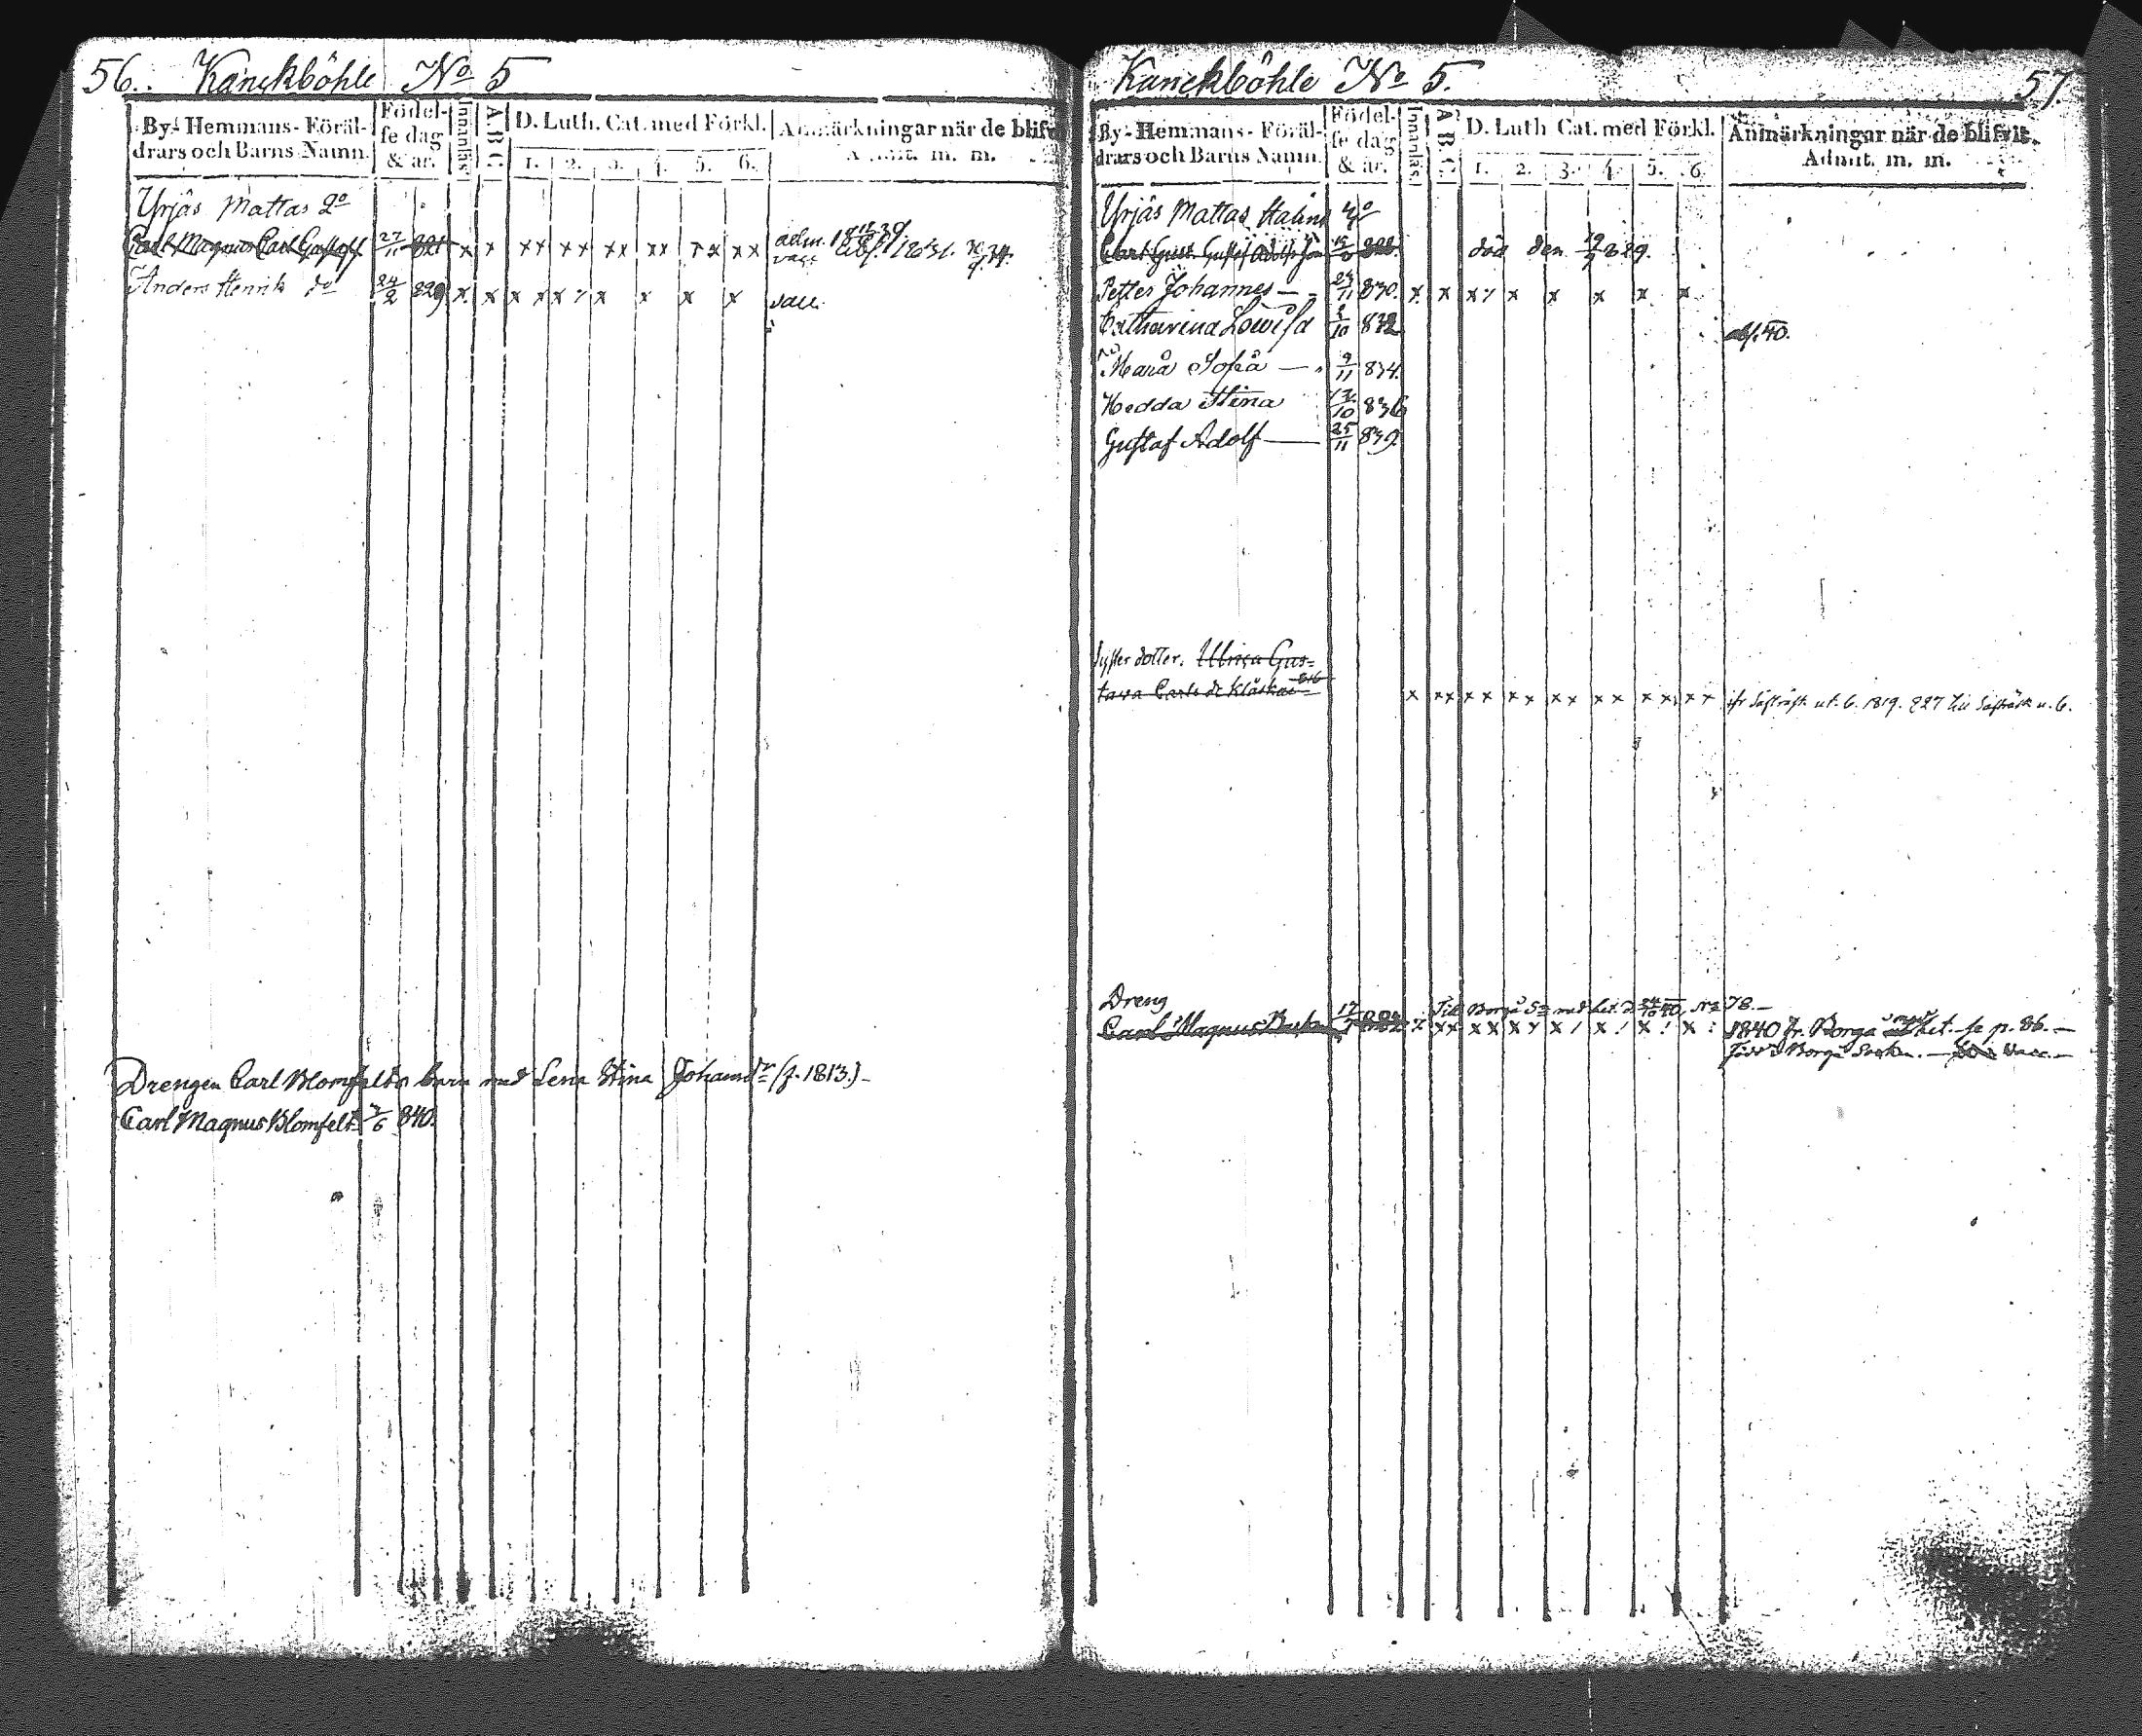 56. Kanckböhle No 5
By- Hemmans- Föräl-
drars och Barns Namn.
Födel-
se dag
& år.
Innanläs
A B C
D. Luth. Cat. med Förkl.
1. 2. 3. 4. 5. 6.
Anmärkningar när de blifv
Admit. m. m.
Yrjäs Mattas 2o
Carl Magnus Carl Gustafs 27/11 821 x x xx xx xx xx xx xx
Anders Henrik do 24/2 829 x x x x x x x x x x vacc.
Drengen Carl Blomfelts barn med Lena Stina Johansdr (f. 1813.)
Carl Magnus Blomfelt 840.
Kanckböhle No 5. 57.
By- Hemmans- Föräl-
drars och Barns Namn.
Födel-
se dag
& år.
Innanläs
A B C
D. Luth Cat. med Förkl.
1. 2. 3. 4. 5. 6.
Anmärkningar när de blifvit
Admit. m. m.
Yrjäs Mattas Stalina 4o
död den 829.
Petter Johannes 11 830. x x x x x x x x x
Catharina Lowisa 10 832 abs. 40.
Maria Sofia 9/11 834.
Hedda Stina 10 836
Gustaf Adolf 25/11 839
Syster dotter. Ulrica Gus-
tava Carls dr x xx xx xx xx xx xx xx 1819. 827
Dreng Till Borgå Sn med bet. No 78.
Carl Magnus 1840 fr. Borgå bet. se p. 86.
Född i Borgå Socken. vacc.